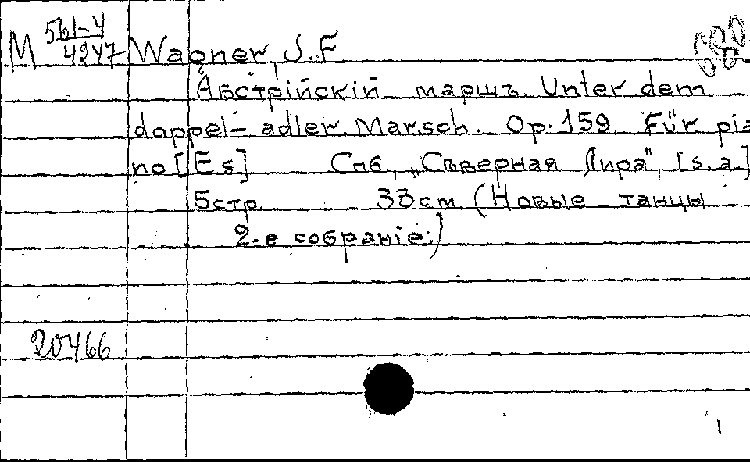 М 56-4/4247 Wagner, J. F.
Австрійскій маршъ. Unter dem
doppel-adler. Marsch. Op. 159 Für pia
no [Es] Спб, „Съверная Лира", [s.a.]
5 стр. 33 cm (Новые танцы
2-е собраніе.)
20466